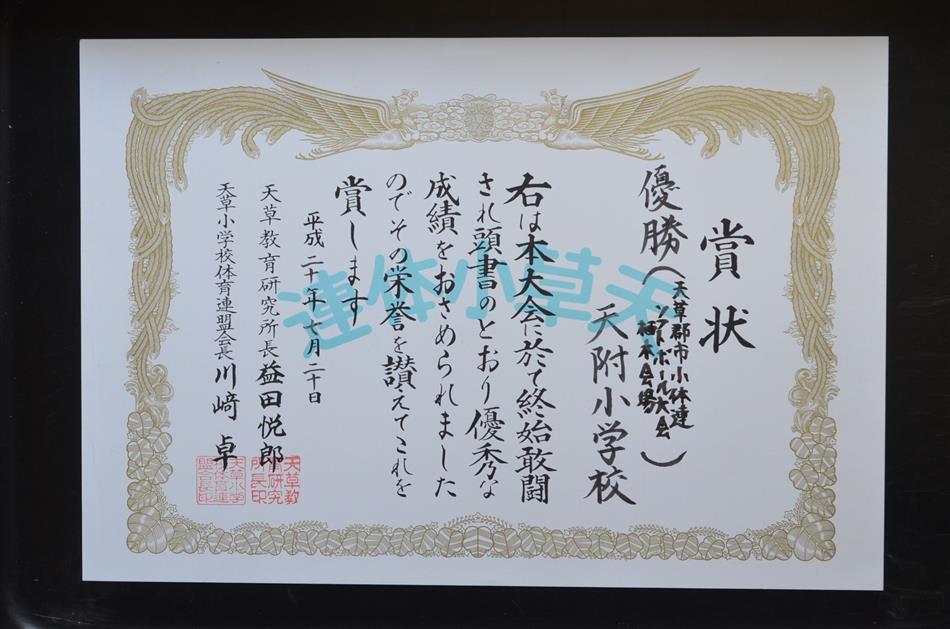 賞状
優勝(天草郡市小体連
ソフトボール大会
樹木会場)
天附小学校
右は本大会に於て終始敢闘
され頭書のとおり優秀な
成績をおさめられました
のでその栄誉を讃えてこれを
賞します
平成二十年七月二十日
天草教育研究所長 益田悦郎
天草小学校体育連盟会長 川﨑卓
天草教
育研究
所長印
天草小学
校体育連
盟会長印
天草小体連